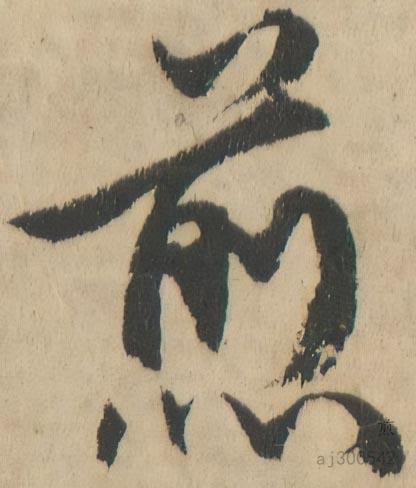 煎
煎
aj300542